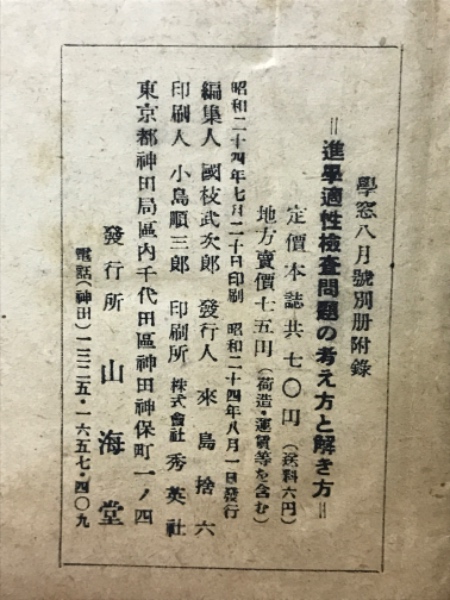 學窓八月號別册附錄
=進學適性檢査問題の考え方と解き方=
定價本誌共七〇円(送料六円)
地方賣價七五円(荷造・運賃等を含む)
昭和二十四年七月二十日印刷 昭和二十四年八月一日發行
編集人 國枝武次郎 發行人 來島捨六
印刷人 小島順三郎 印刷所 株式會社 秀英社
東京都神田局區內千代田區神田神保町一ノ四
發行所 山海堂
電話(神田)一三二五・一六五七・四〇九